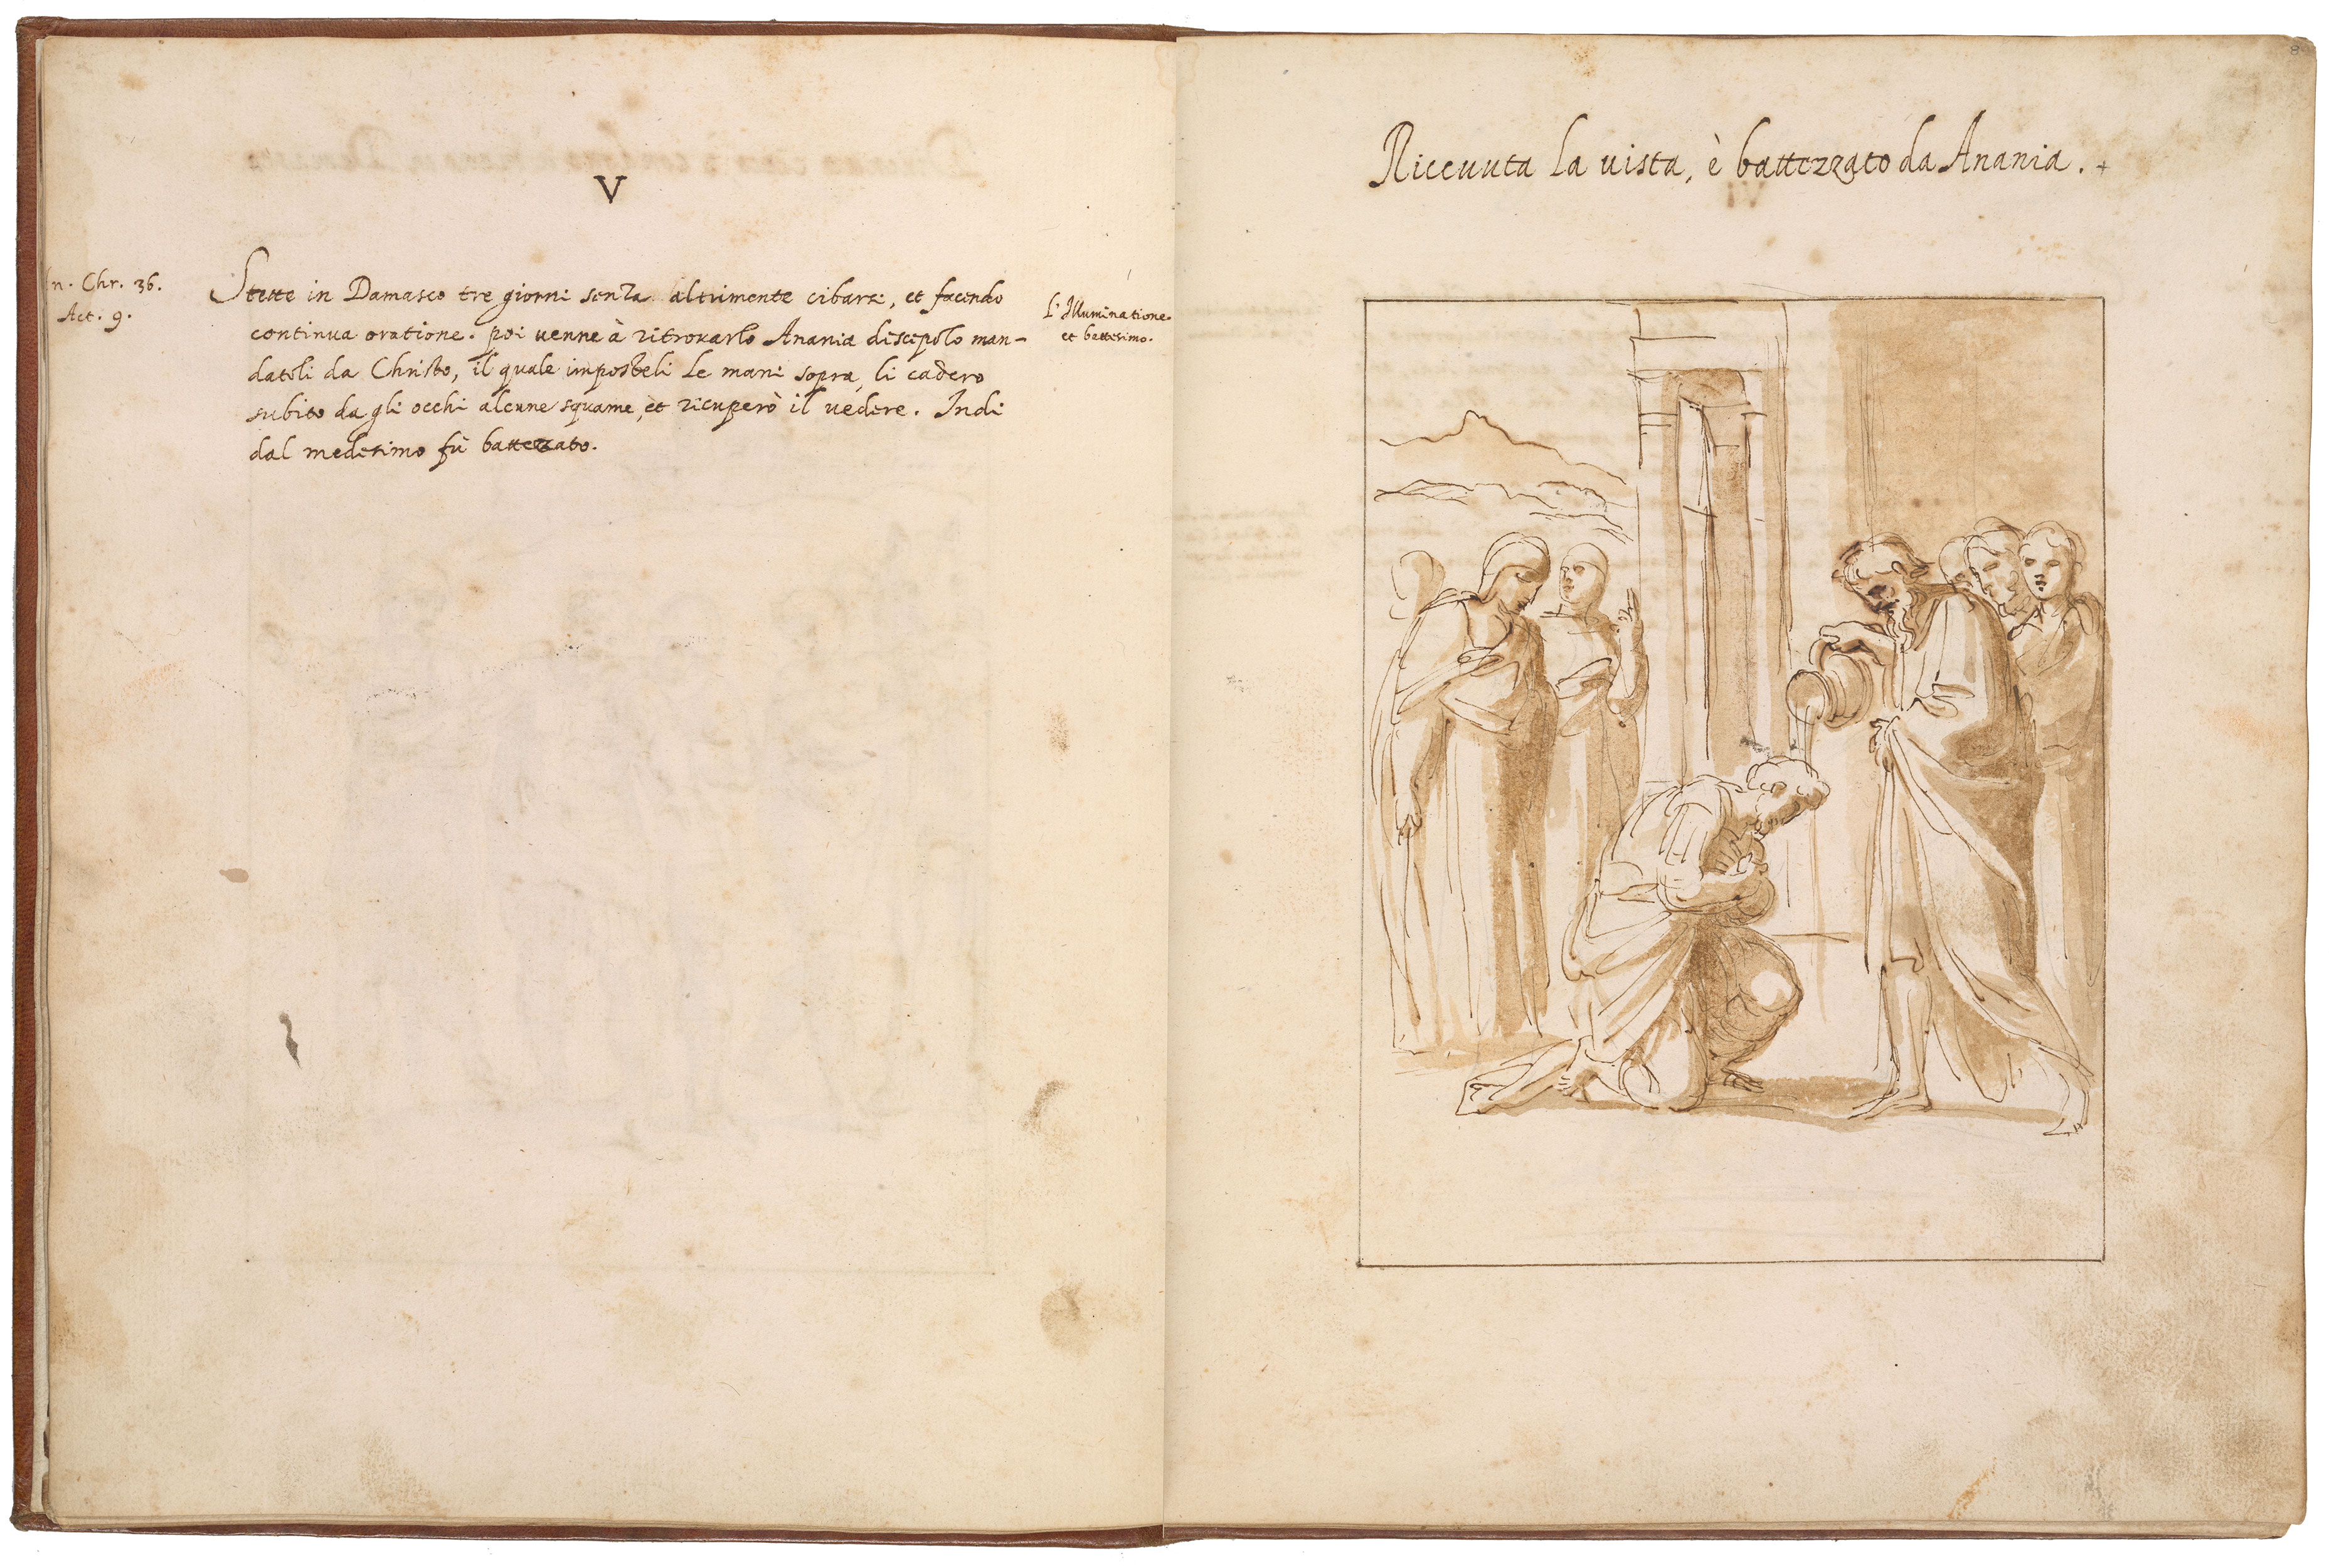 V
An. Chr. 36.
Act. 9.
Stette in Damasco tre giorni senza altrimente cibarsi, et facendo
continua oratione. poi uenne à ritrovarlo Anania discepolo man-
datoli da Christo, il quale imposteli le mani sopra, li cadero
subito da gli occhi alcune squame, et ricuperò il vedere. Indi
dal medesimo fù battezzato.
L'Illuminatione
et battesimo.
8
Riceuuta la uista, è battezzato da Anania. +